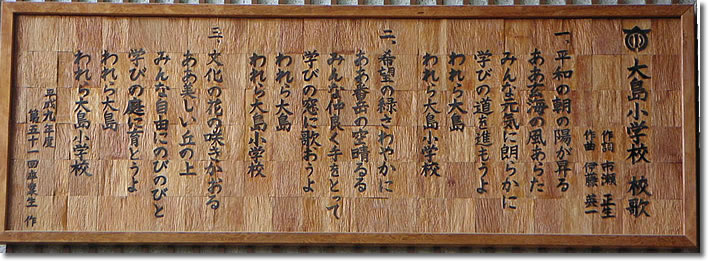 大島小学校 校歌
作詞 市瀬 正生
作曲 伊藤 英一
一、平和の朝の陽が昇る
ああ玄海の風あらた
みんな元気に朗らかに
学びの道を進もうよ
われら大島
われら大島小学校
二、希望の緑さわやかに
ああ番岳の空晴るる
みんな仲良く手をとって
学びの窓に歌おうよ
われら大島
われら大島小学校
三、文化の花の咲きかおる
ああ美しい丘の上
みんな自由にのびのびと
学びの庭に育とうよ
われら大島
われら大島小学校
平成九年度
第五十一回卒業生 作